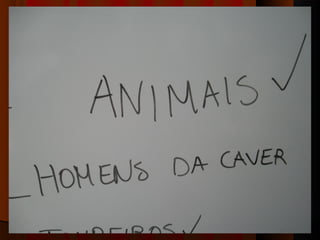 ANIMAIS ✓
HOMENS DA CAVER